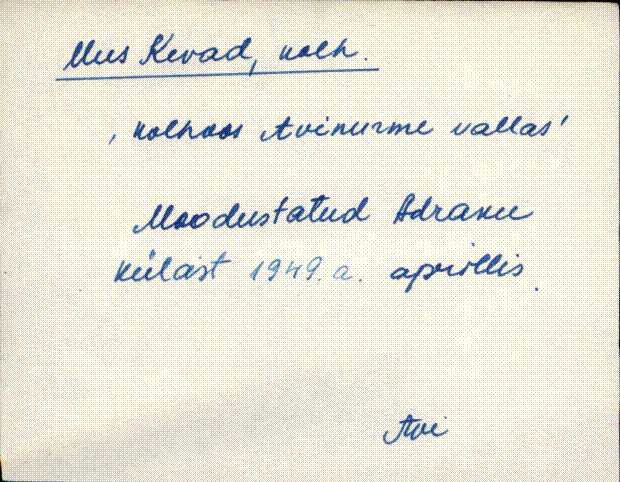 Uus Kevad, kolh.
, kolhoos Avinurme vallas'
Moodustatud Adraku
külast 1949. a. aprillis.
Avi